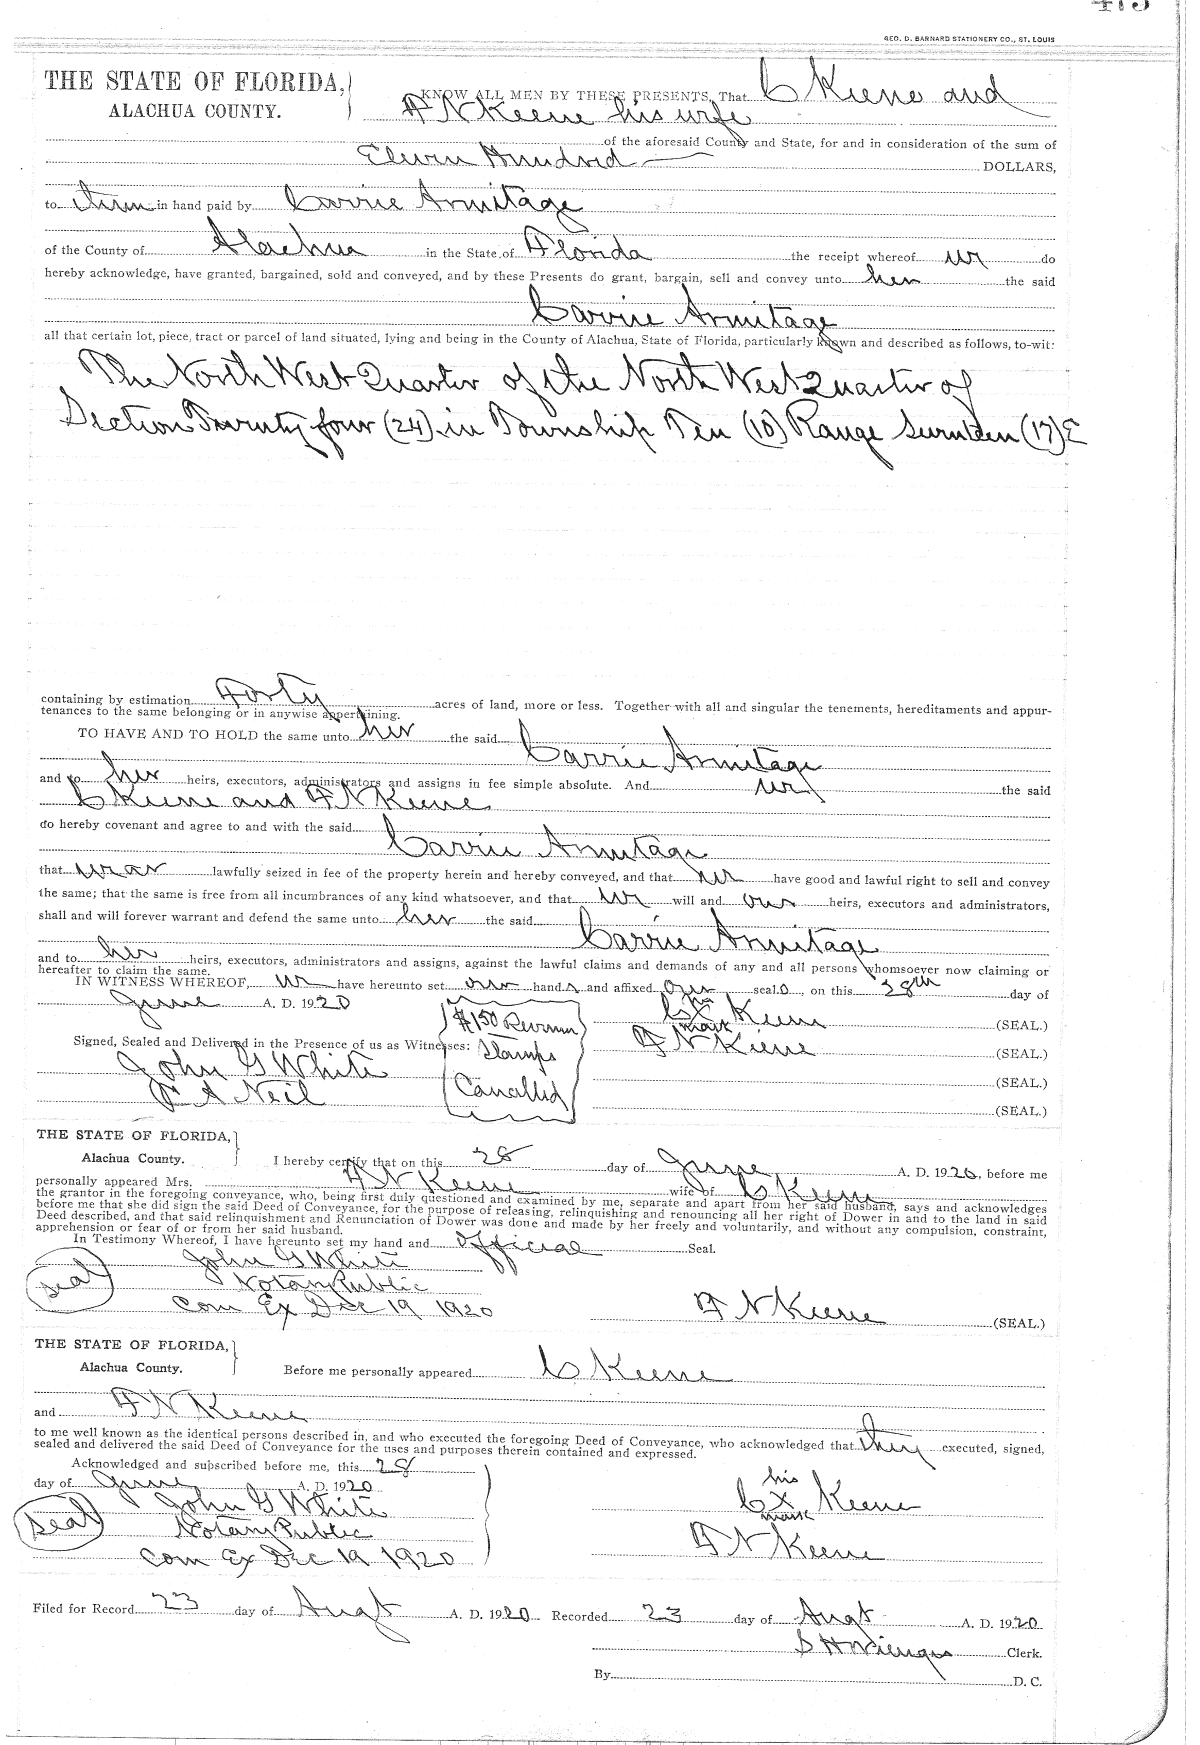 GEO. D. BARNARD STATIONERY CO., ST. LOUIS
THE STATE OF FLORIDA,
ALACHUA COUNTY.
KNOW ALL MEN BY THESE PRESENTS, That C Keene and
F N Keene his wife
of the aforesaid County and State, for and in consideration of the sum of
Eleven Hundred DOLLARS,
to them in hand paid by Carrie Armitage
of the County of Alachua in the State of Florida the receipt whereof we do
hereby acknowledge, have granted, bargained, sold and conveyed, and by these Presents do grant, bargain, sell and convey unto her the said
Carrie Armitage
all that certain lot, piece, tract or parcel of land situated, lying and being in the County of Alachua, State of Florida, particularly known and described as follows, to-wit:
The North West Quarter of the North West Quarter of
Section Twenty four (24) in Township Ten (10) Range Seventeen (17) E
containing by estimation Forty acres of land, more or less. Together with all and singular the tenements, hereditaments and appur-
tenances to the same belonging or in anywise appertaining.
TO HAVE AND TO HOLD the same unto her the said Carrie Armitage
and to her heirs, executors, administrators and assigns in fee simple absolute. And we the said
C Keene and F N Keene
do hereby covenant and agree to and with the said Carrie Armitage
that we are lawfully seized in fee of the property herein and hereby conveyed, and that we have good and lawful right to sell and convey
the same; that the same is free from all incumbrances of any kind whatsoever, and that we will and our heirs, executors and administrators,
shall and will forever warrant and defend the same unto her the said
Carrie Armitage
and to her heirs, executors, administrators and assigns, against the lawful claims and demands of any and all persons whomsoever now claiming or
hereafter to claim the same.
IN WITNESS WHEREOF, we have hereunto set our hand s and affixed our seal s, on this 28th day of
June A. D. 1920
$1.50 Revenue
Stamps
Cancelled
his
C X Keene (SEAL.)
mark
F N Keene (SEAL.)
(SEAL.)
(SEAL.)
Signed, Sealed and Delivered in the Presence of us as Witnesses:
John G White
A Neil
THE STATE OF FLORIDA,
Alachua County.
I hereby certify that on this 28 day of June A. D. 1920, before me
personally appeared Mrs. F N Keene wife of C Keene
the grantor in the foregoing conveyance, who, being first duly questioned and examined by me, separate and apart from her said husband, says and acknowledges
before me that she did sign the said Deed of Conveyance, for the purpose of releasing, relinquishing and renouncing all her right of Dower in and to the land in said
Deed described, and that said relinquishment and Renunciation of Dower was done and made by her freely and voluntarily, and without any compulsion, constraint,
apprehension or fear of or from her said husband.
In Testimony Whereof, I have hereunto set my hand and official Seal.
John G White
seal
Notary Public
Com Ex Dec 19 1920
F N Keene (SEAL.)
THE STATE OF FLORIDA,
Alachua County.
Before me personally appeared C Keene
and F N Keene
to me well known as the identical persons described in, and who executed the foregoing Deed of Conveyance, who acknowledged that they executed, signed,
sealed and delivered the said Deed of Conveyance for the uses and purposes therein contained and expressed.
Acknowledged and subscribed before me, this 28
day of June A. D. 1920
John G White
seal
Notary Public
Com Ex Dec 19 1920
his
C X Keene
mark
F N Keene
Filed for Record 23 day of Augt A. D. 1920 Recorded 23 day of Augt A. D. 1920
S H Wienges Clerk.
By D. C.